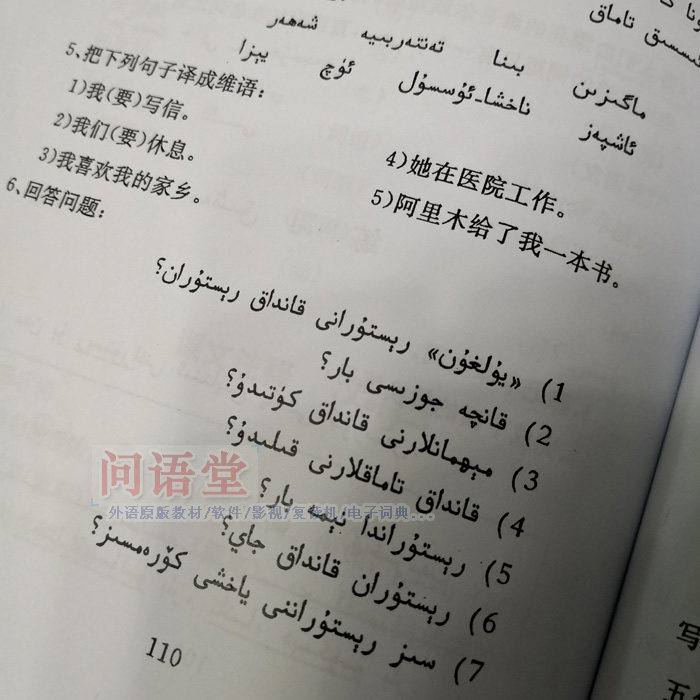 تاماق
ماگىزىن بىنا تەنتەربىيە شەھەر
ئاشپەز ناخشا-ئۇسسۇل ئۈچ يېزا
5、把下列句子译成维语：
1)我(要)写信。
2)我们(要)休息。
3)我喜欢我的家乡。
4)她在医院工作。
5)阿里木给了我一本书。
6、回答问题：
1) «يۇلغۇن» رېستۇرانى قانداق رېستۇران؟
2) قانچە جوزىسى بار؟
3) مېھمانلارنى قانداق كۈتىدۇ؟
4) قانداق تاماقلارنى قىلىدۇ؟
5) رېستۇراندا نېمە بار؟
6) رېستۇران قانداق جاي؟
7) سىز رېستۇراننى ياخشى كۆرەمسىز؟
问语堂
外语原版教材/软件/影视/复读机/电子词典...
110
写